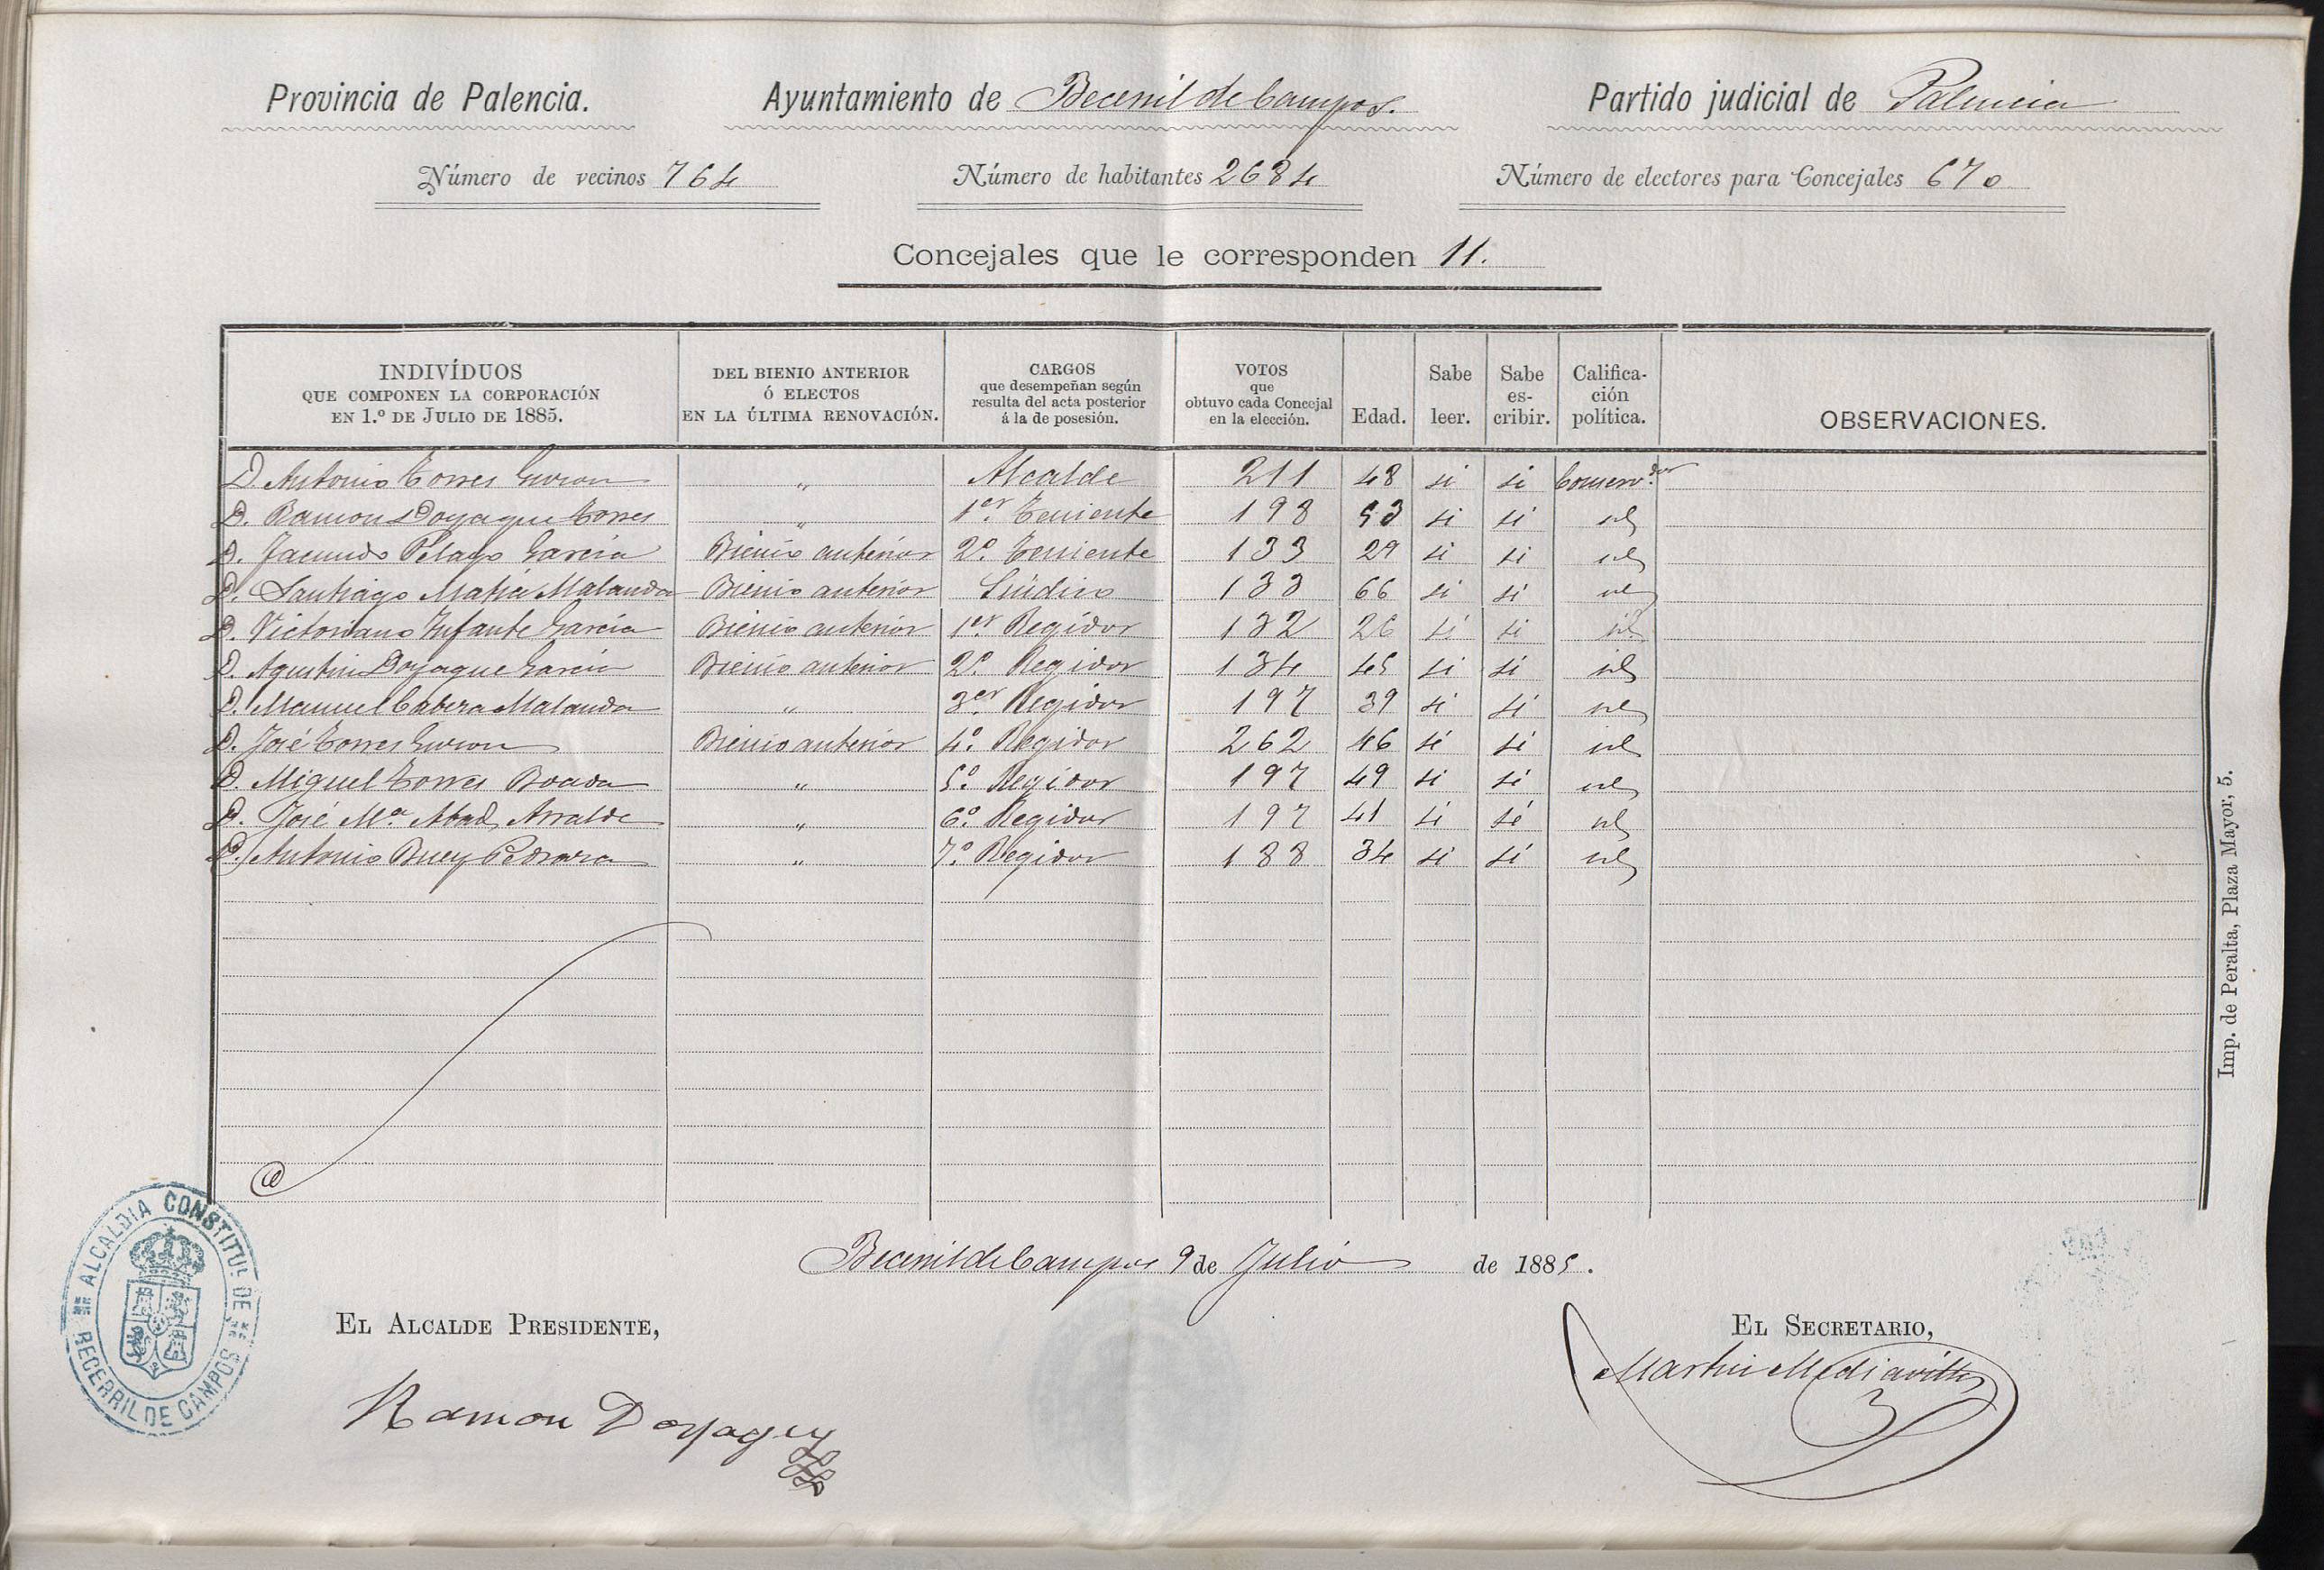 Provincia de Palencia. Ayuntamiento de Becerril de Campos. Partido judicial de Palencia
Número de vecinos 764 Número de habitantes 2684 Número de electores para Concejales 670
Concejales que le corresponden 11.
INDIVÍDUOS QUE COMPONEN LA CORPORACIÓN EN 1.º DE JULIO DE 1885. DEL BIENIO ANTERIOR Ó ELECTOS EN LA ÚLTIMA RENOVACIÓN. CARGOS que desempeñan según resulta del acta posterior á la de posesión. VOTOS que obtuvo cada Concejal en la elección. Edad. Sabe leer. Sabe es-cribir. Califica-ción política. OBSERVACIONES.
D. Antonio Torres " Alcalde 211 48 si si Conserv.dor
D. Ramon Doyague Torres " 1er. Teniente 198 53 si si id
D. Facundo Pelayo García Bienio anterior 2º. Teniente 133 29 si si id
D. Santiago Matía Malanda Bienio anterior Síndico 133 66 si si id
D. Victoriano Infante García Bienio anterior 1er. Regidor 132 26 si si id
D. Agustin Doyague García Bienio anterior 2º. Regidor 134 45 si si id
D. Manuel Cabeza Malanda " 3er. Regidor 197 39 si si id
D. José Torres Bienio anterior 4º. Regidor 262 46 si si id
D. Miguel Torres Boada " 5º. Regidor 197 49 si si id
D. José Mª. Abad " 6º. Regidor 197 41 si si id
D. Antonio Buey Pedrosa " 7º. Regidor 188 34 si si id
Becerril de Campos 9 de Julio de 1885.
EL ALCALDE PRESIDENTE,
EL SECRETARIO,
Ramon Doyague
Martin Mediavilla
ALCALDIA CONSTITUL. DE BECERRIL DE CAMPOS
Imp. de Peralta, Plaza Mayor, 5.